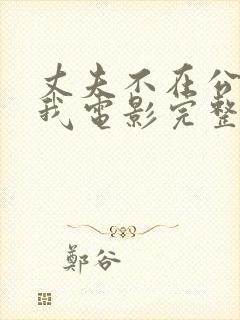 丈夫不在公
我电影完整
鄭谷